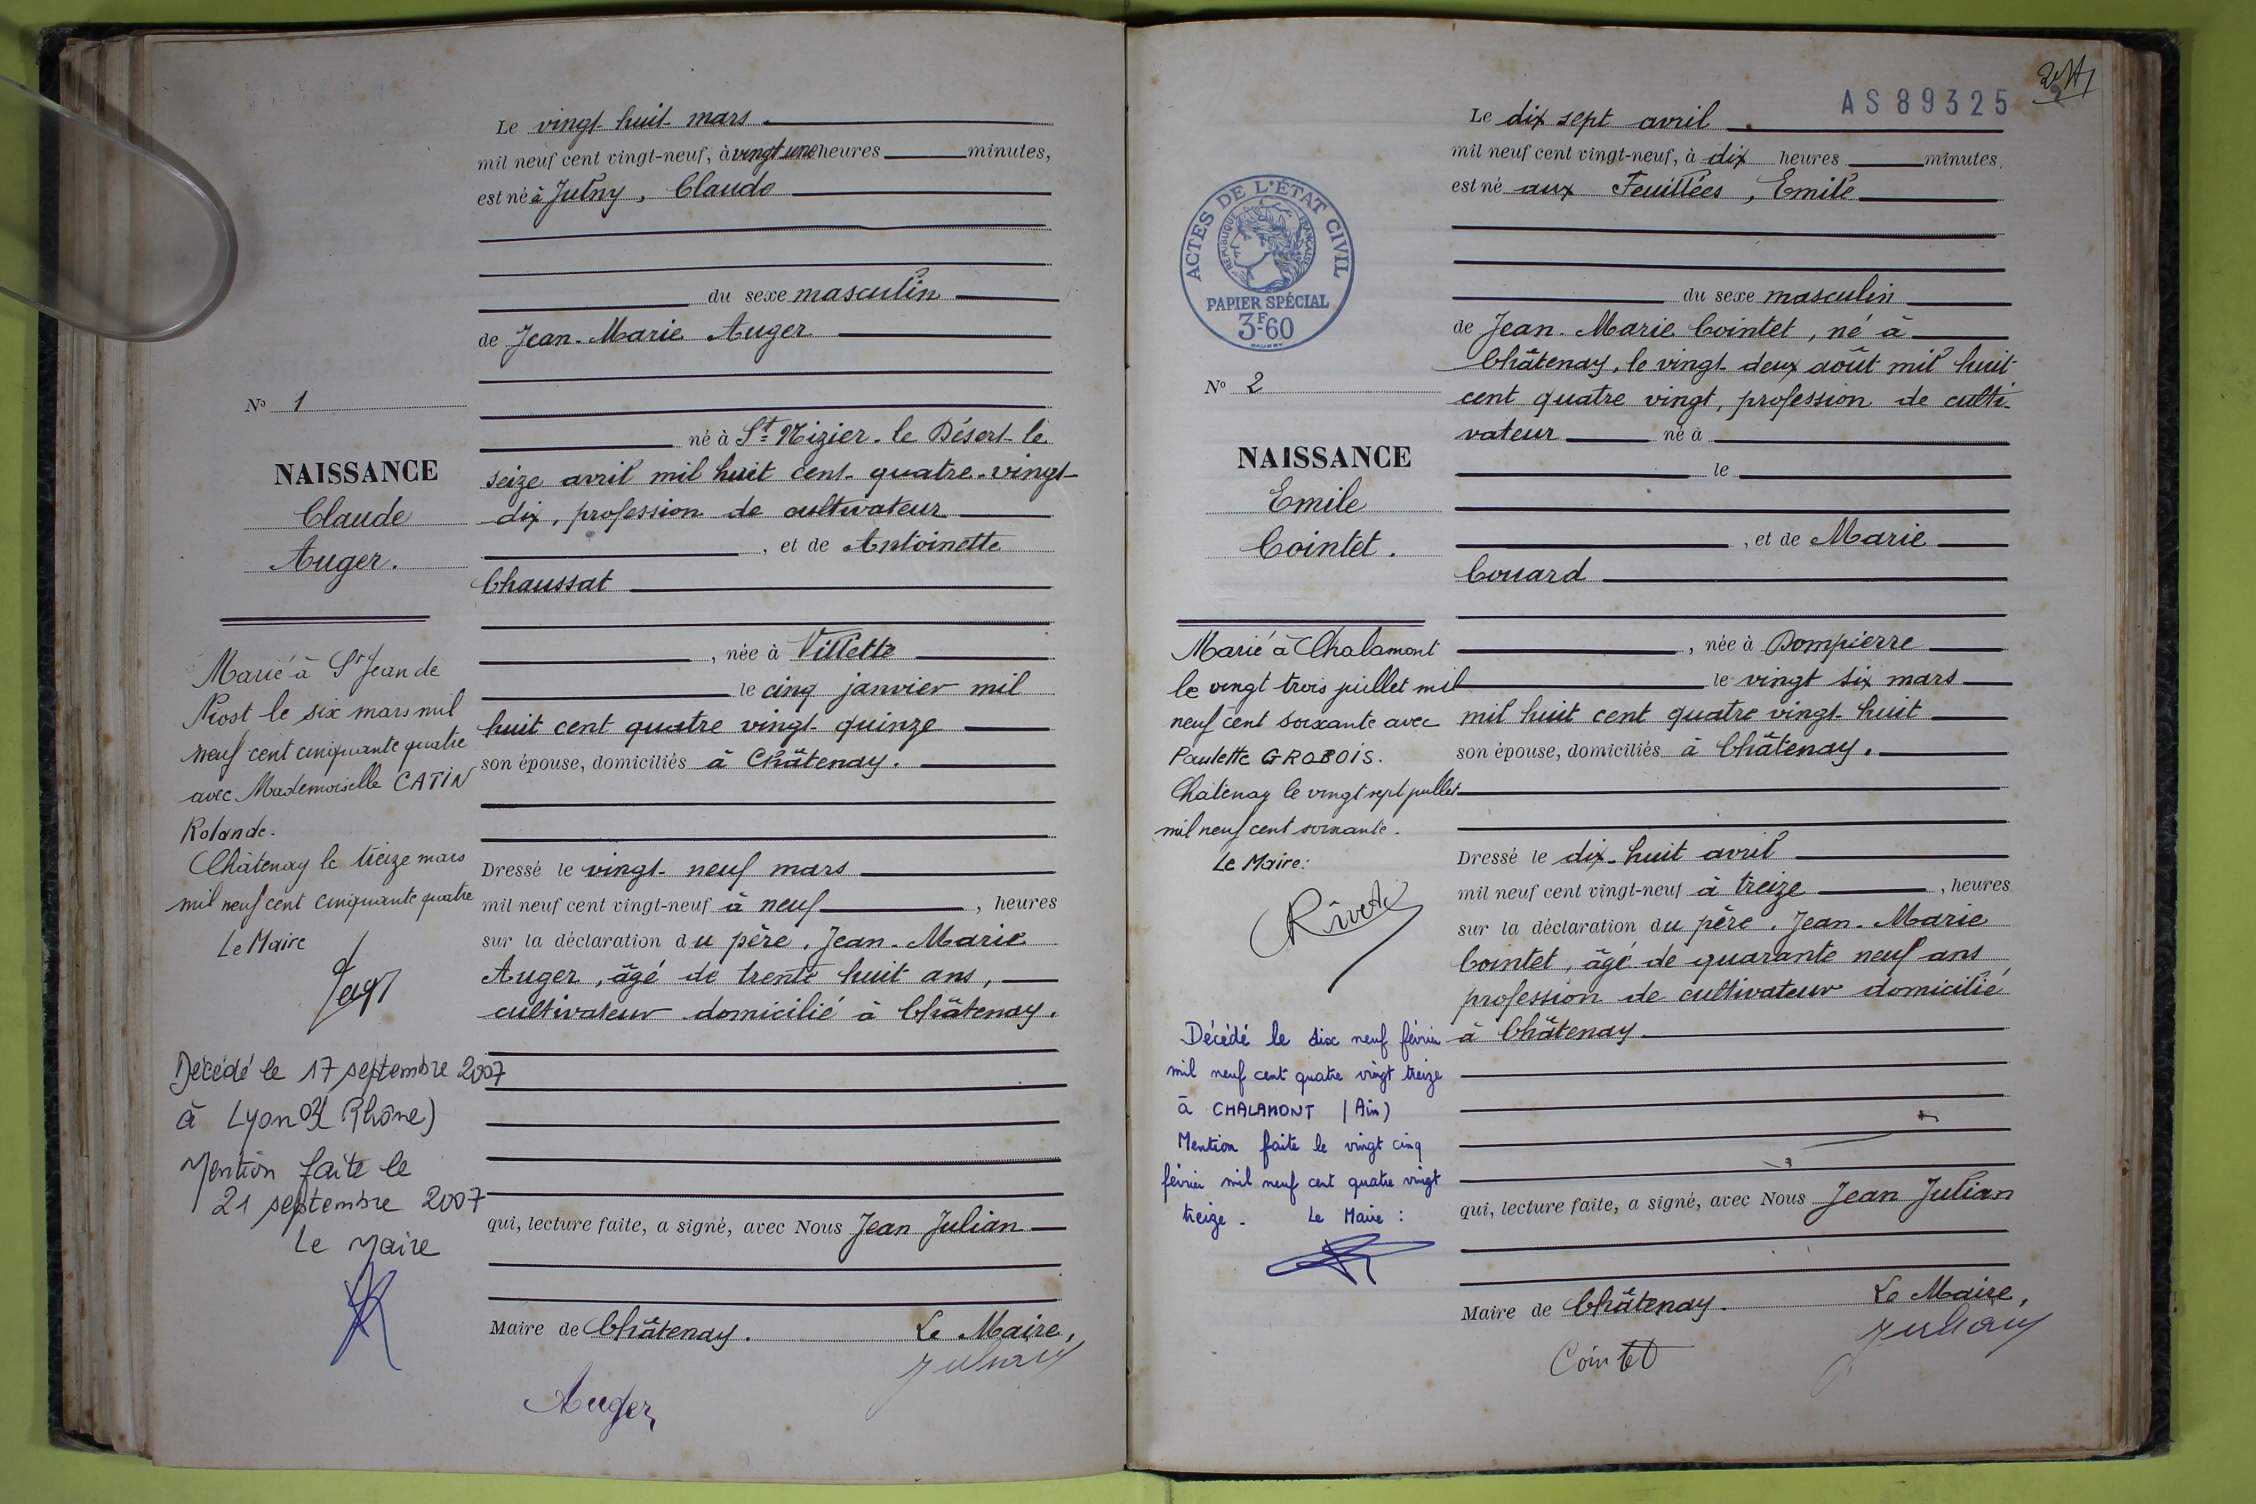 Le vingt-huit mars
mil neuf cent vingt-neuf, à vingt une heures minutes,
est né à Julny, Claude
du sexe masculin
de Jean-Marie Auger
né à St Nizier-le Désert le
seize avril mil huit cent-quatre-vingt-
dix, profession de cultivateur
, et de Antoinette
Chaussat
, née à Villette
le cinq janvier mil
huit cent quatre vingt-quinze
son épouse, domiciliés à Châtenay.
Dressé le vingt-neuf mars
mil neuf cent vingt-neuf à neuf , heures
sur la déclaration du père, Jean-Marie
Auger, âgé de trente huit ans,
cultivateur domicilié à Châtenay.
qui, lecture faite, a signé, avec Nous Jean Julian
Maire de Châtenay. Le Maire,
Auger
N° 1
NAISSANCE
Claude
Auger.
Marié à St Jean de
Niost le six mars mil
neuf cent cinquante quatre
avec Mademoiselle CATIN
Rolande.
Châtenay le treize mars
mil neuf cent cinquante quatre
Le Maire
Décédé le 17 septembre 2007
à Lyon (Rhône)
Mention faite le
21 septembre 2007
Le Maire
AS 89325
Le dix sept avril
mil neuf cent vingt-neuf, à dix heures minutes.
est né aux Feuillées, Emile
du sexe masculin
de Jean-Marie Cointet, né à
Châtenay, le vingt-deux août mil huit
cent quatre vingt, profession de culti-
vateur né à
le
, et de Marie
Couard
, née à Dompierre
le vingt six mars
mil huit cent quatre vingt-huit
son épouse, domiciliés à Châtenay.
Dressé le dix-huit avril
mil neuf cent vingt-neuf à treize , heures
sur la déclaration du père, Jean-Marie
Cointet, âgé de quarante neuf ans
profession de cultivateur domicilié
à Châtenay
qui, lecture faite, a signé, avec Nous Jean Julian
Maire de Châtenay. Le Maire,
Cointet
ACTES DE L'ÉTAT CIVIL
RÉPUBLIQUE FRANÇAISE
PAPIER SPÉCIAL
3F60
N° 2
NAISSANCE
Emile
Cointet.
Marié à Chalamont
le vingt trois juillet mil
neuf cent soixante avec
Paulette GROBOIS.
Châtenay le vingt sept juillet
mil neuf cent soixante.
Le Maire:
Rivet
Décédé le dix neuf février
mil neuf cent quatre vingt treize
à CHALAMONT (Ain)
Mention faite le vingt cinq
février mil neuf cent quatre vingt
treize. Le Maire :